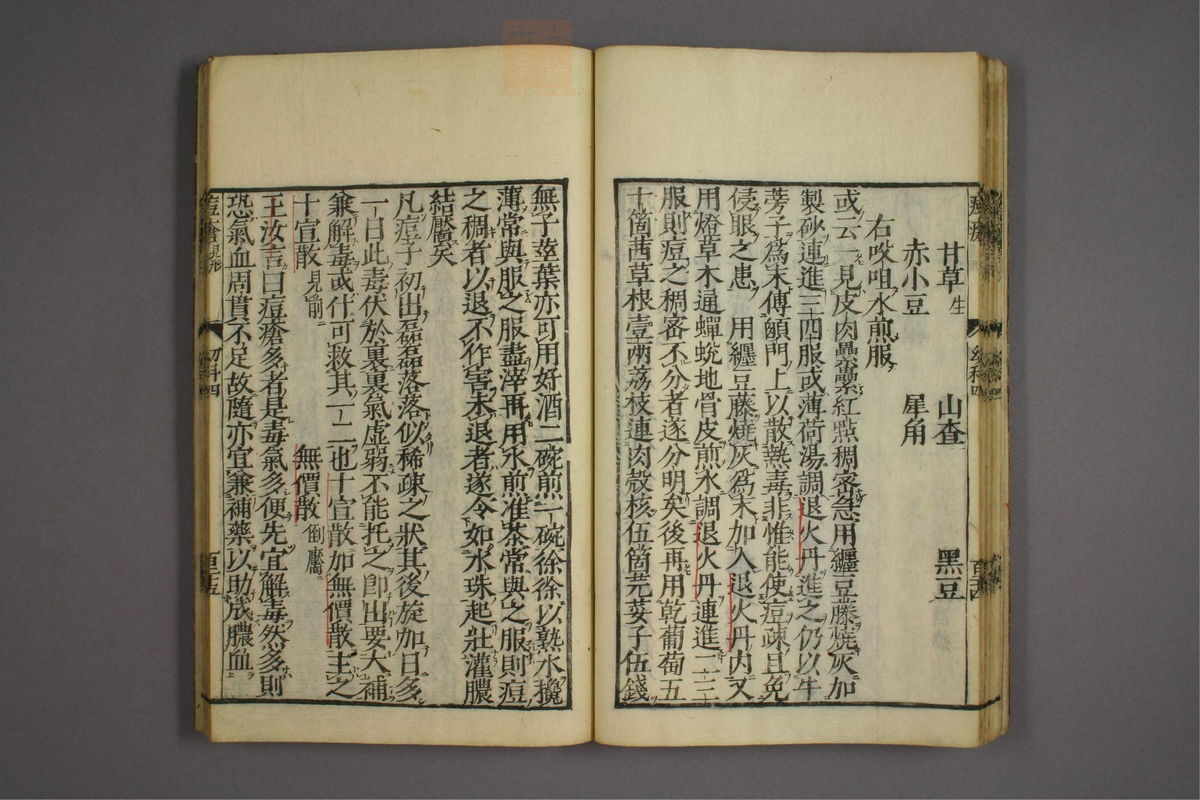 甘草生　山査　黑豆
赤小豆　犀角
右㕮咀水煎服
或云一見皮肉纍纍紅點稠密急用纒豆藤燒灰加
製砂連進三四服或薄荷湯調退火丹進之仍以牛
蒡子爲末傅顖門上以散熱毒非惟能使痘疎且免
侵眼之患　用纒豆藤燒灰爲末加入退火丹内又
用燈草木通蟬蛻地骨皮煎水調退火丹連進二三
服則痘之稠密不分者遂分明矣後再用乾葡萄五
十箇茜草根壹兩荔枝連肉殼核伍箇芫荽子伍錢
無子莖葉亦可用好酒二碗煎一碗徐徐以熟水攙
薄常與服之服盡滓再用水煎准茶常與之服則痘
之稠者以退不作害未退者遂令如水珠起壯灌膿
結靨矣
凡痘子初出磊磊落落似稀疎之狀其後旋加日多
一日此毒伏於裏裏氣虛弱不能托之即出要大補
兼解毒或什可救其一二也十宣散加無價散主之
十宣散見前　無價散倒靨
王汝言曰痘瘡多者是毒氣多便先宜解毒然多則
恐氣血周貫不足故隨亦宜兼補藥以助成膿血
痘瘡見形　幼科四　百十五